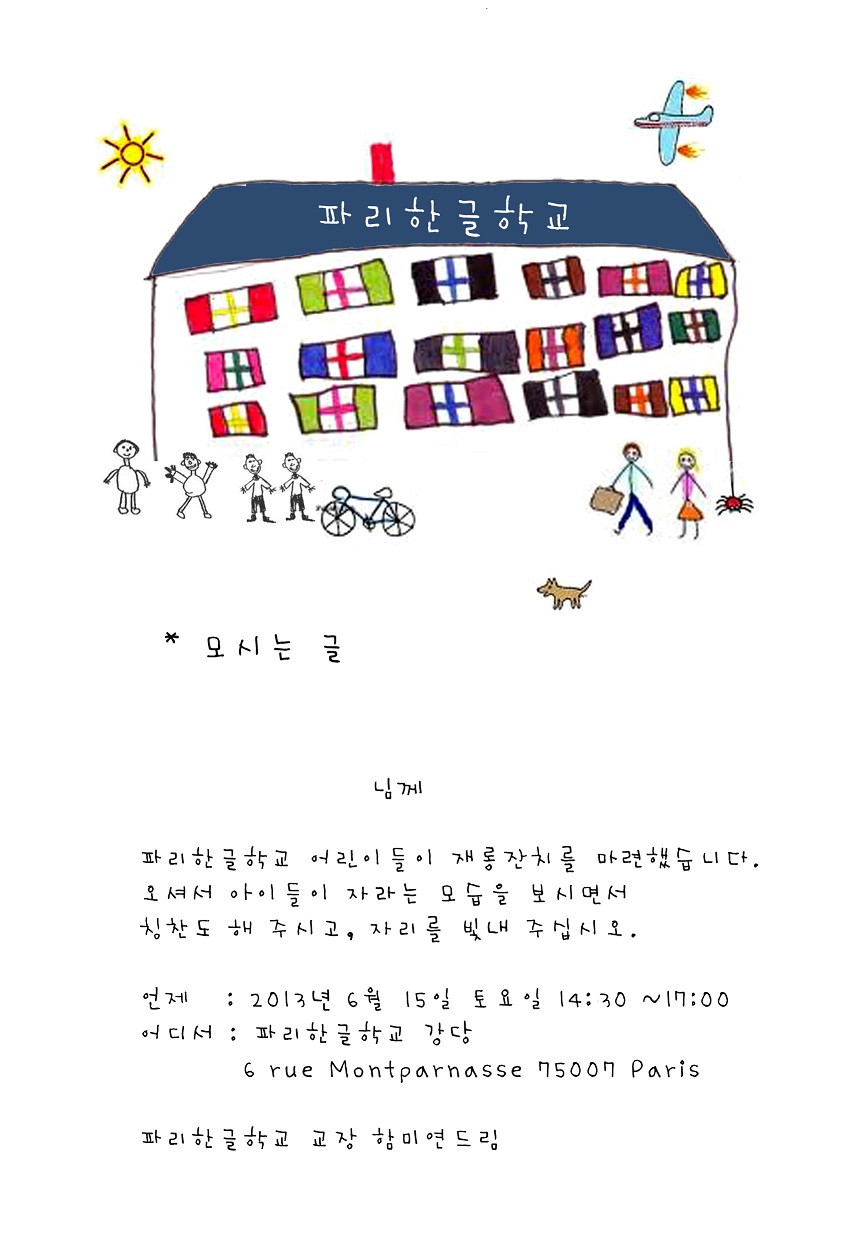 파리한글학교
* 모시는 글
님께
파리한글학교 어린이들이 재롱잔치를 마련했습니다.
오셔서 아이들이 자라는 모습을 보시면서
칭찬도 해 주시고, 자리를 빛내 주십시오.
언제 : 2013년 6월 15일 토요일 14:30 ~17:00
어디서 : 파리한글학교 강당
6 rue Montparnasse 75007 Paris
파리한글학교 교장 함미연드림